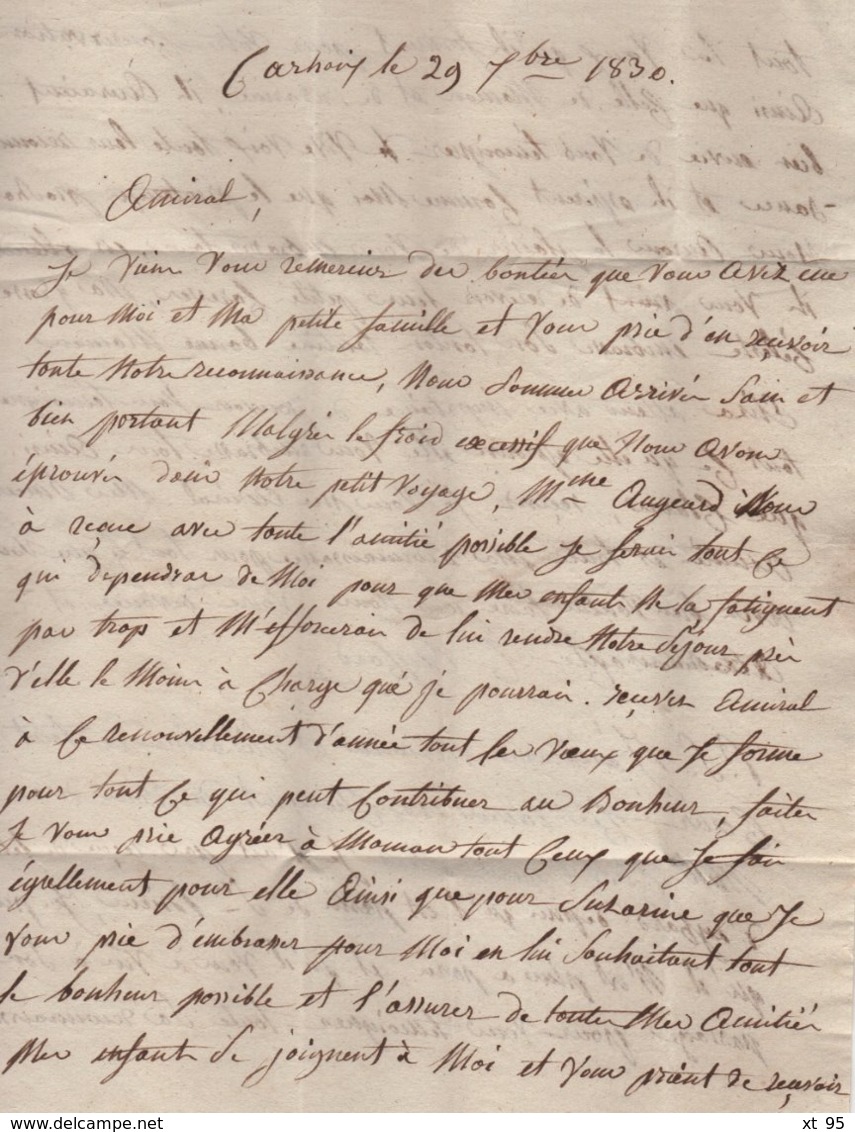 Carhaix le 29 Xbre 1830.
Amiral,
Je viens vous remercier des bontées que vous avez eue
pour Moi et Ma petite famille et vous prie d'en recevoir
toute Notre reconnaissance, Nous Sommes Arrivés Sain et
bien portant Malgrés le froid excessif que Nous avons
éprouvés dans Notre petit voyage, Mme Augeard Nous
à reçue avec toute l'amitié possible Je ferai tout Ce
qui dependrae de Moi pour que Mes enfants Ne la fatiguent
par trop et M'efforcerai de lui rendre Notre Séjour près
d'elle le Moins à Charge qué je pourrai. recevez Amiral
à Ce renouvellement d'année tout les vœux que Je forme
pour tout Ce qui peut Contribuer au Bonheur, faites
Je vous prie Agréer à Maman tout Ceux que Je fais
égallement pour elle Ainsi que pour Suzanne que Je
vous prie d'embrasser pour Moi en lui Souhaitant tout
le bonheur possible et l'assurer de toutes Mes Amitiés
Mes enfants Se joignent à Moi et vous prient de recevoir
xt 95